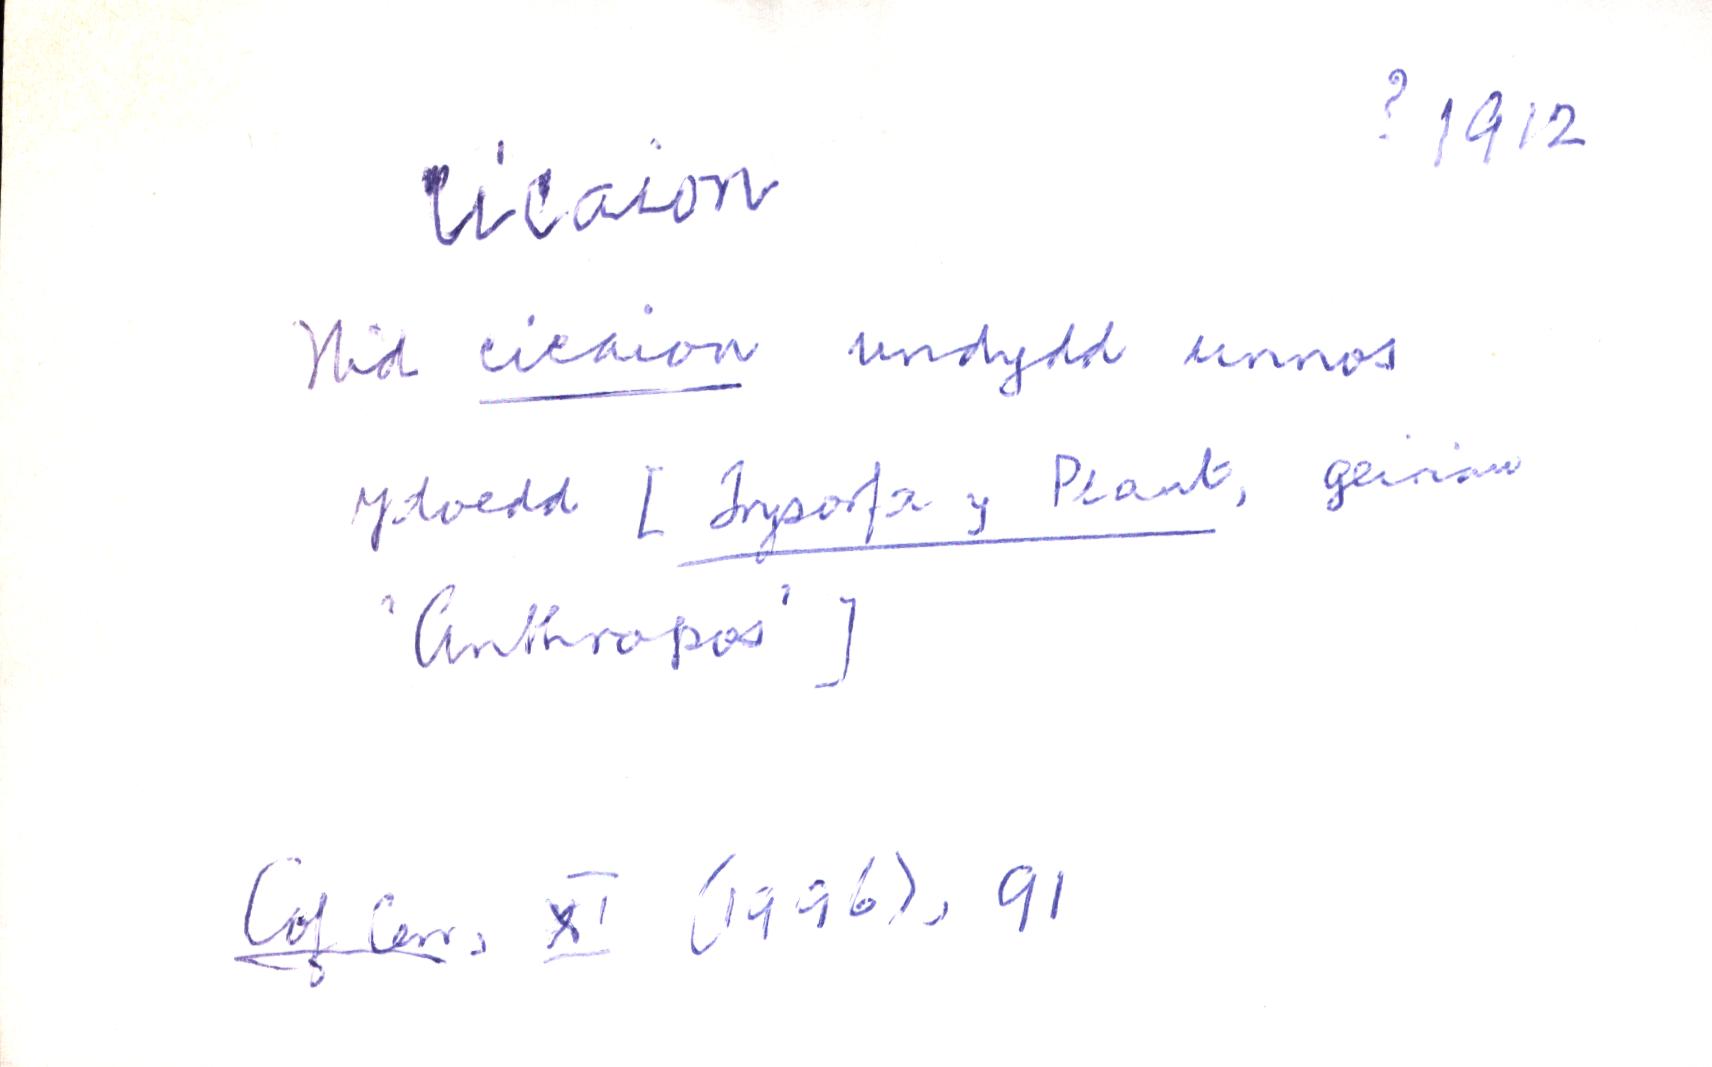 ? 1912
cicaion
Nid cicaion undydd unnos
ydoedd [ Trysorfa y Plant, geiriau
'Anthropos' ]
Cof Cen, XI (1996), 91